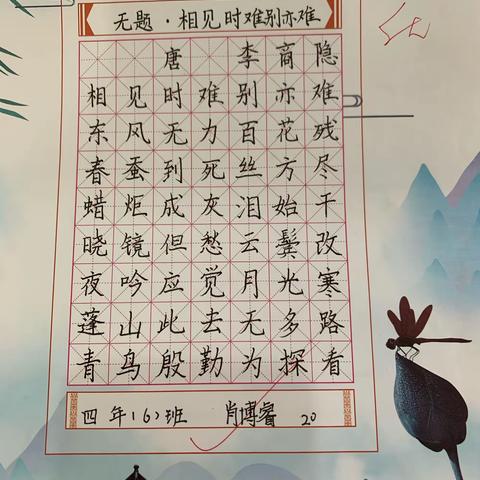 无题·相见时难别亦难
唐 李商隐
相见时难别亦难
东风无力百花残
春蚕到死丝方尽
蜡炬成灰泪始干
晓镜但愁云鬓改
夜吟应觉月光寒
蓬山此去无多路
青鸟殷勤为探看
四年(6)班 肖博睿 20